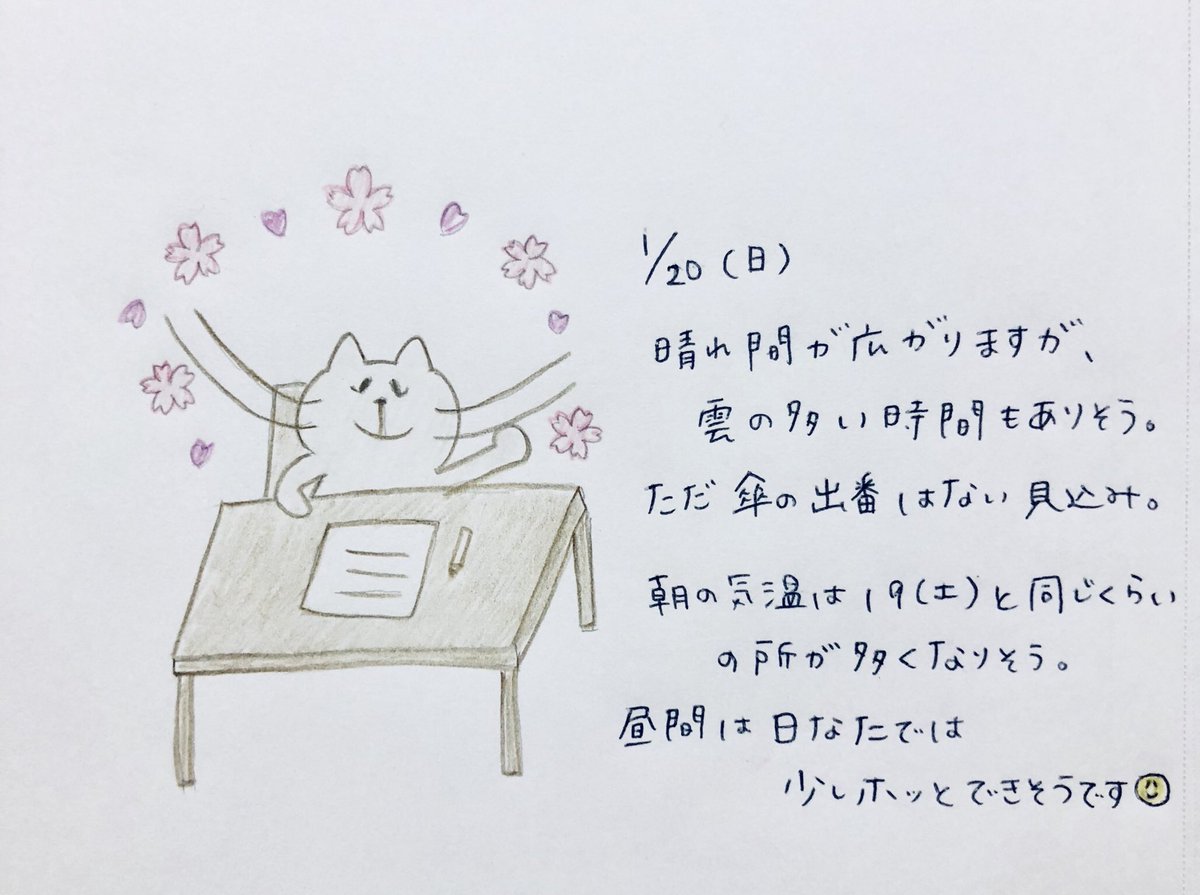 1/20(日)
晴れ間が広がりますが、
雲の多い時間もありそう。
ただ傘の出番はない見込み。
朝の気温は19(土)と同じくらい
の所が多くなりそう。
昼間は日なたでは
少しホッとできそうです